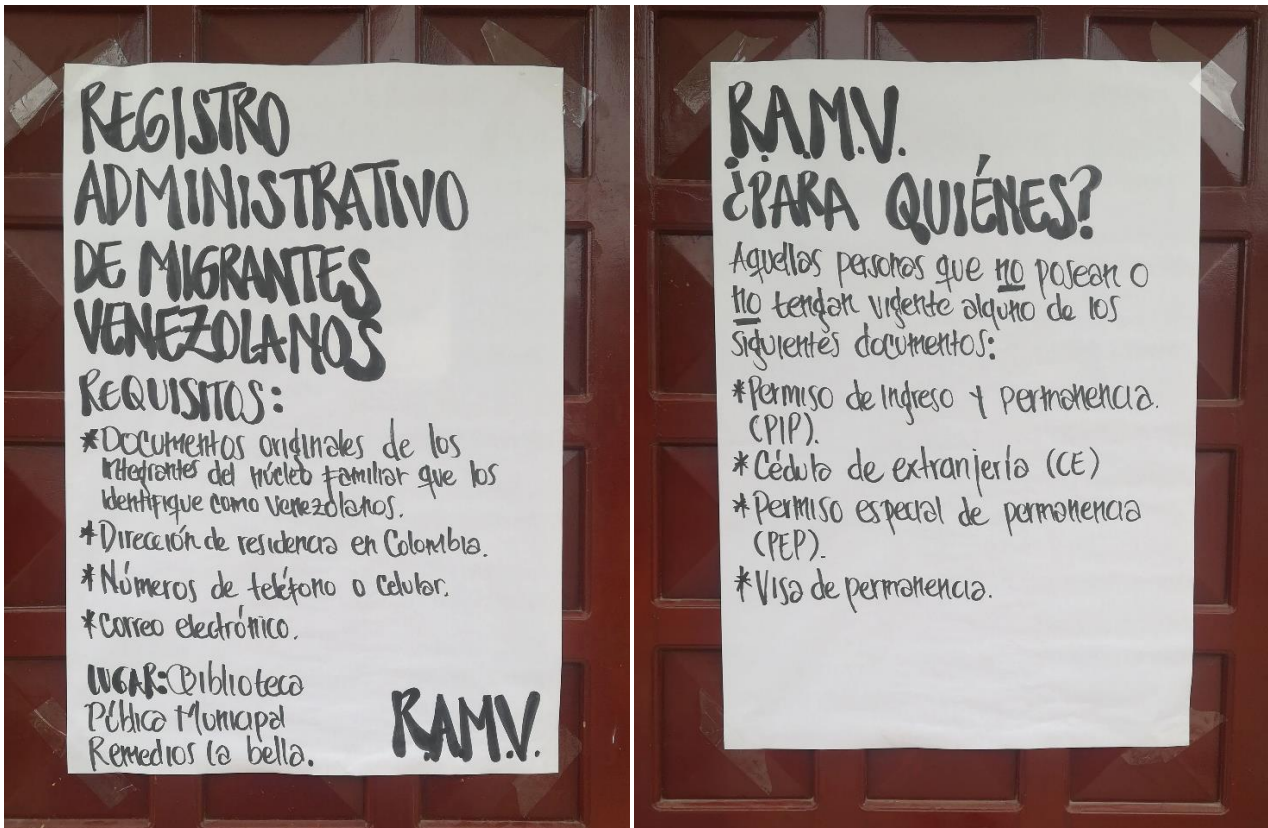 REGISTRO
ADMINISTRATIVO
DE MIGRANTES
VENEZOLANOS
REQUISITOS:
*Documentos originales de los
integrantes del núcleo familiar que los
identifique como venezolanos.
*Dirección de residencia en Colombia.
*Números de teléfono o celular.
*Correo electrónico.
LUGAR: Biblioteca
Pública Municipal
Remedios la bella.
R.A.M.V.
R.A.M.V.
¿PARA QUIÉNES?
Aquellas personas que no posean o
no tengan vigente alguno de los
siguientes documentos:
*Permiso de Ingreso y permanencia.
(PIP).
*Cédula de extranjería (CE)
*Permiso especial de permanencia
(PEP).
*Visa de permanencia.